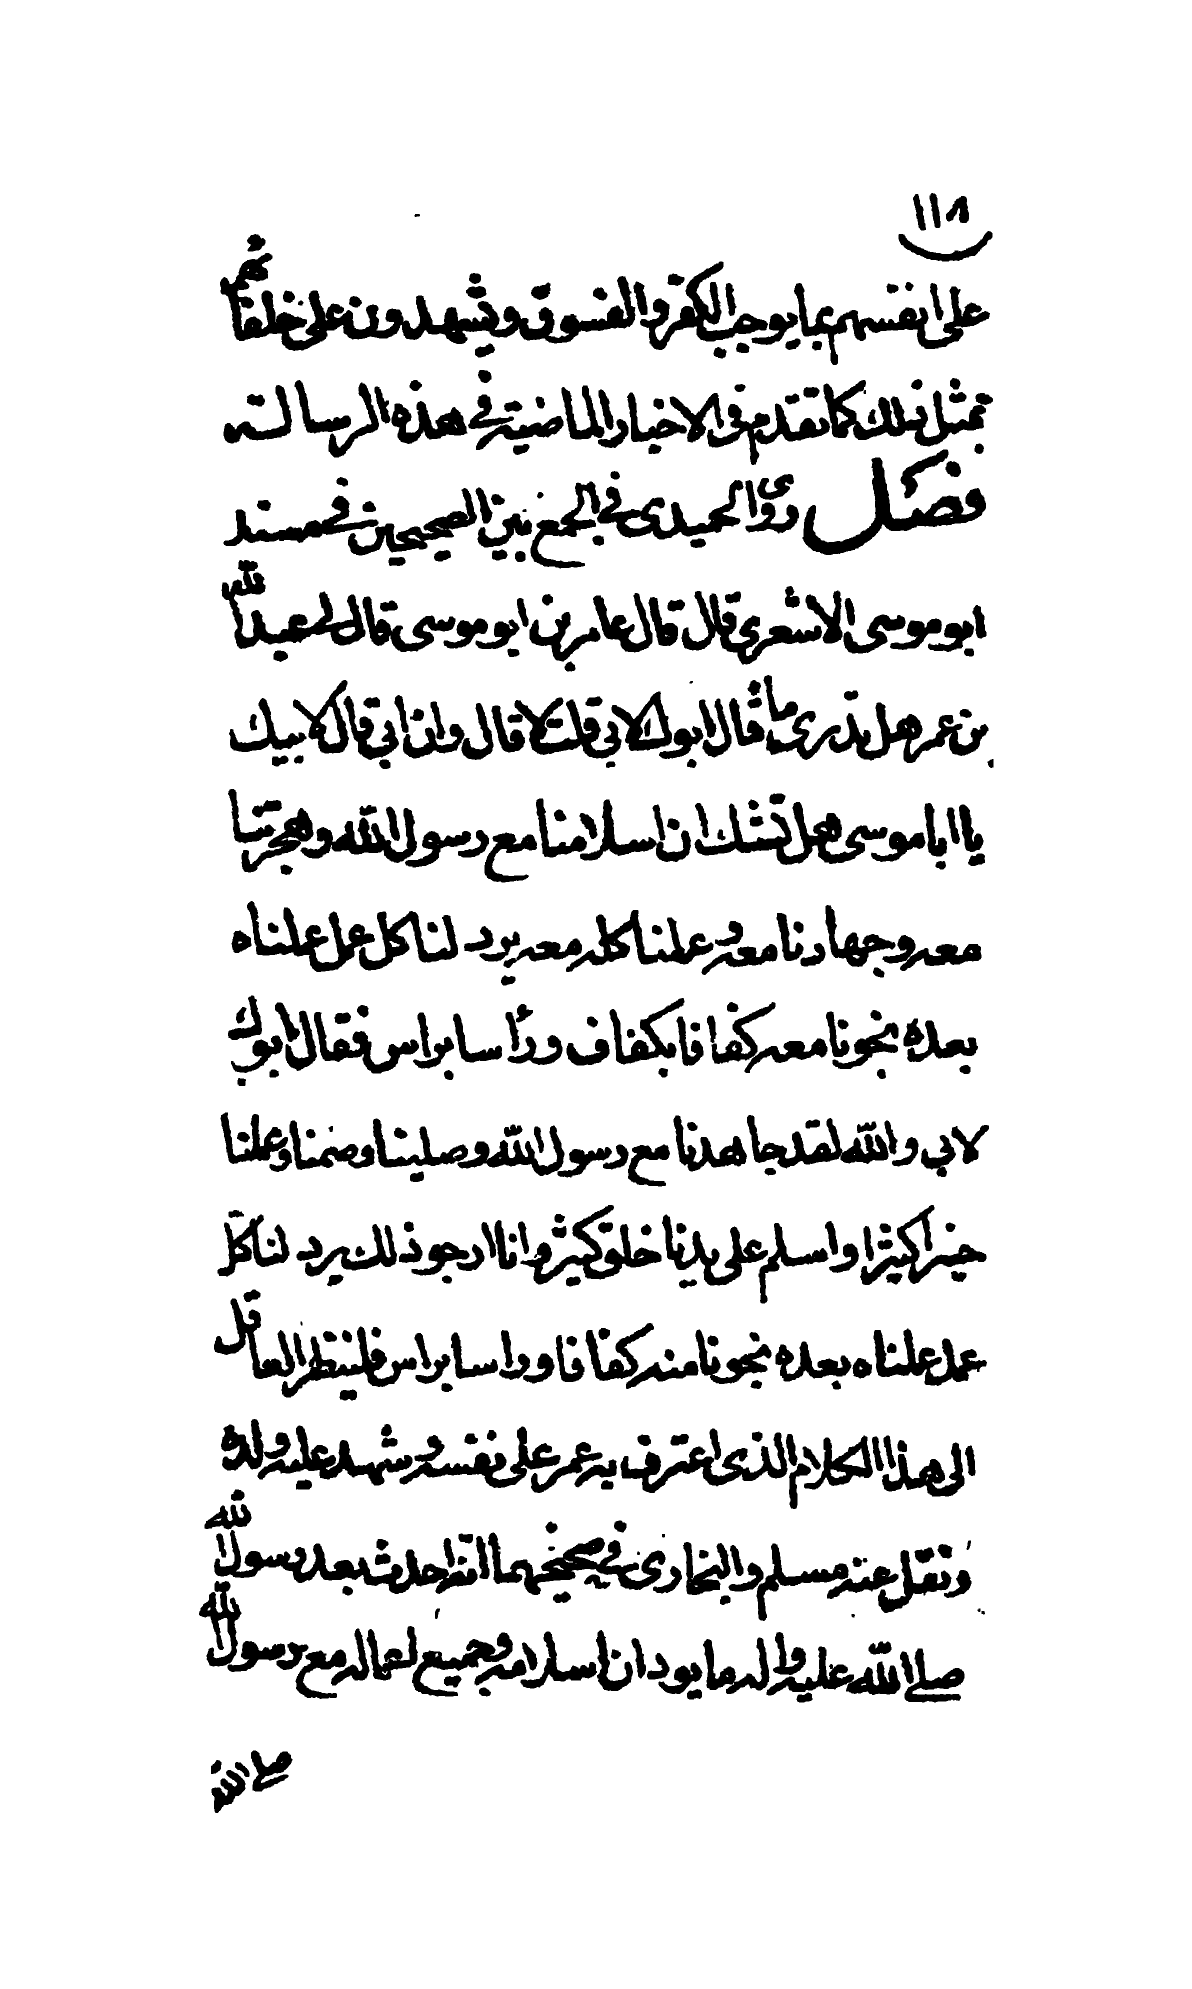 ١١٨
على انفسهم بما يوجب الكفر والفسوق ويشهدون على خلفائهم
بمثل ذلك كما تقدم في الاخبار الماضية في هذه الرسالة
فصل روى الحميدى في الجمع بين الصحيحين في مسند
ابو موسى الاشعرى قال قال عامر بن ابو موسى قال لى عبد الله
بن عمر هل تدرى ما قال ابوك لابي قلت لا قال وان ابي قال لابيك
يا ابا موسى هل تشك ان اسلامنا مع رسول الله وهجرتنا
معه وجهادنا معه وعملنا كله معه يرد لنا كل عمل عملناه
بعده نجونا معه كفافا بكفاف ورأسا براس فقال ابوك
لابي والله لقد جاهدنا مع رسول الله وصلينا وصمنا وعملنا
خيرا كثيرا واسلم على يدينا خلق كثير وانا ارجو ذلك يرد لنا كل
عمل عملناه بعده نجونا منه كفافا وراسا براس فلينظر العاقل
الى هذا الكلام الذى اعترف به عمر على نفسه وشهد عليه ولده
ونقل عنه مسلم والبخارى في صحيحهما انه احدث بعد رسول الله
صلى الله عليه واله ما يود ان اسلامه وجميع اعماله مع رسول الله
صلى الله